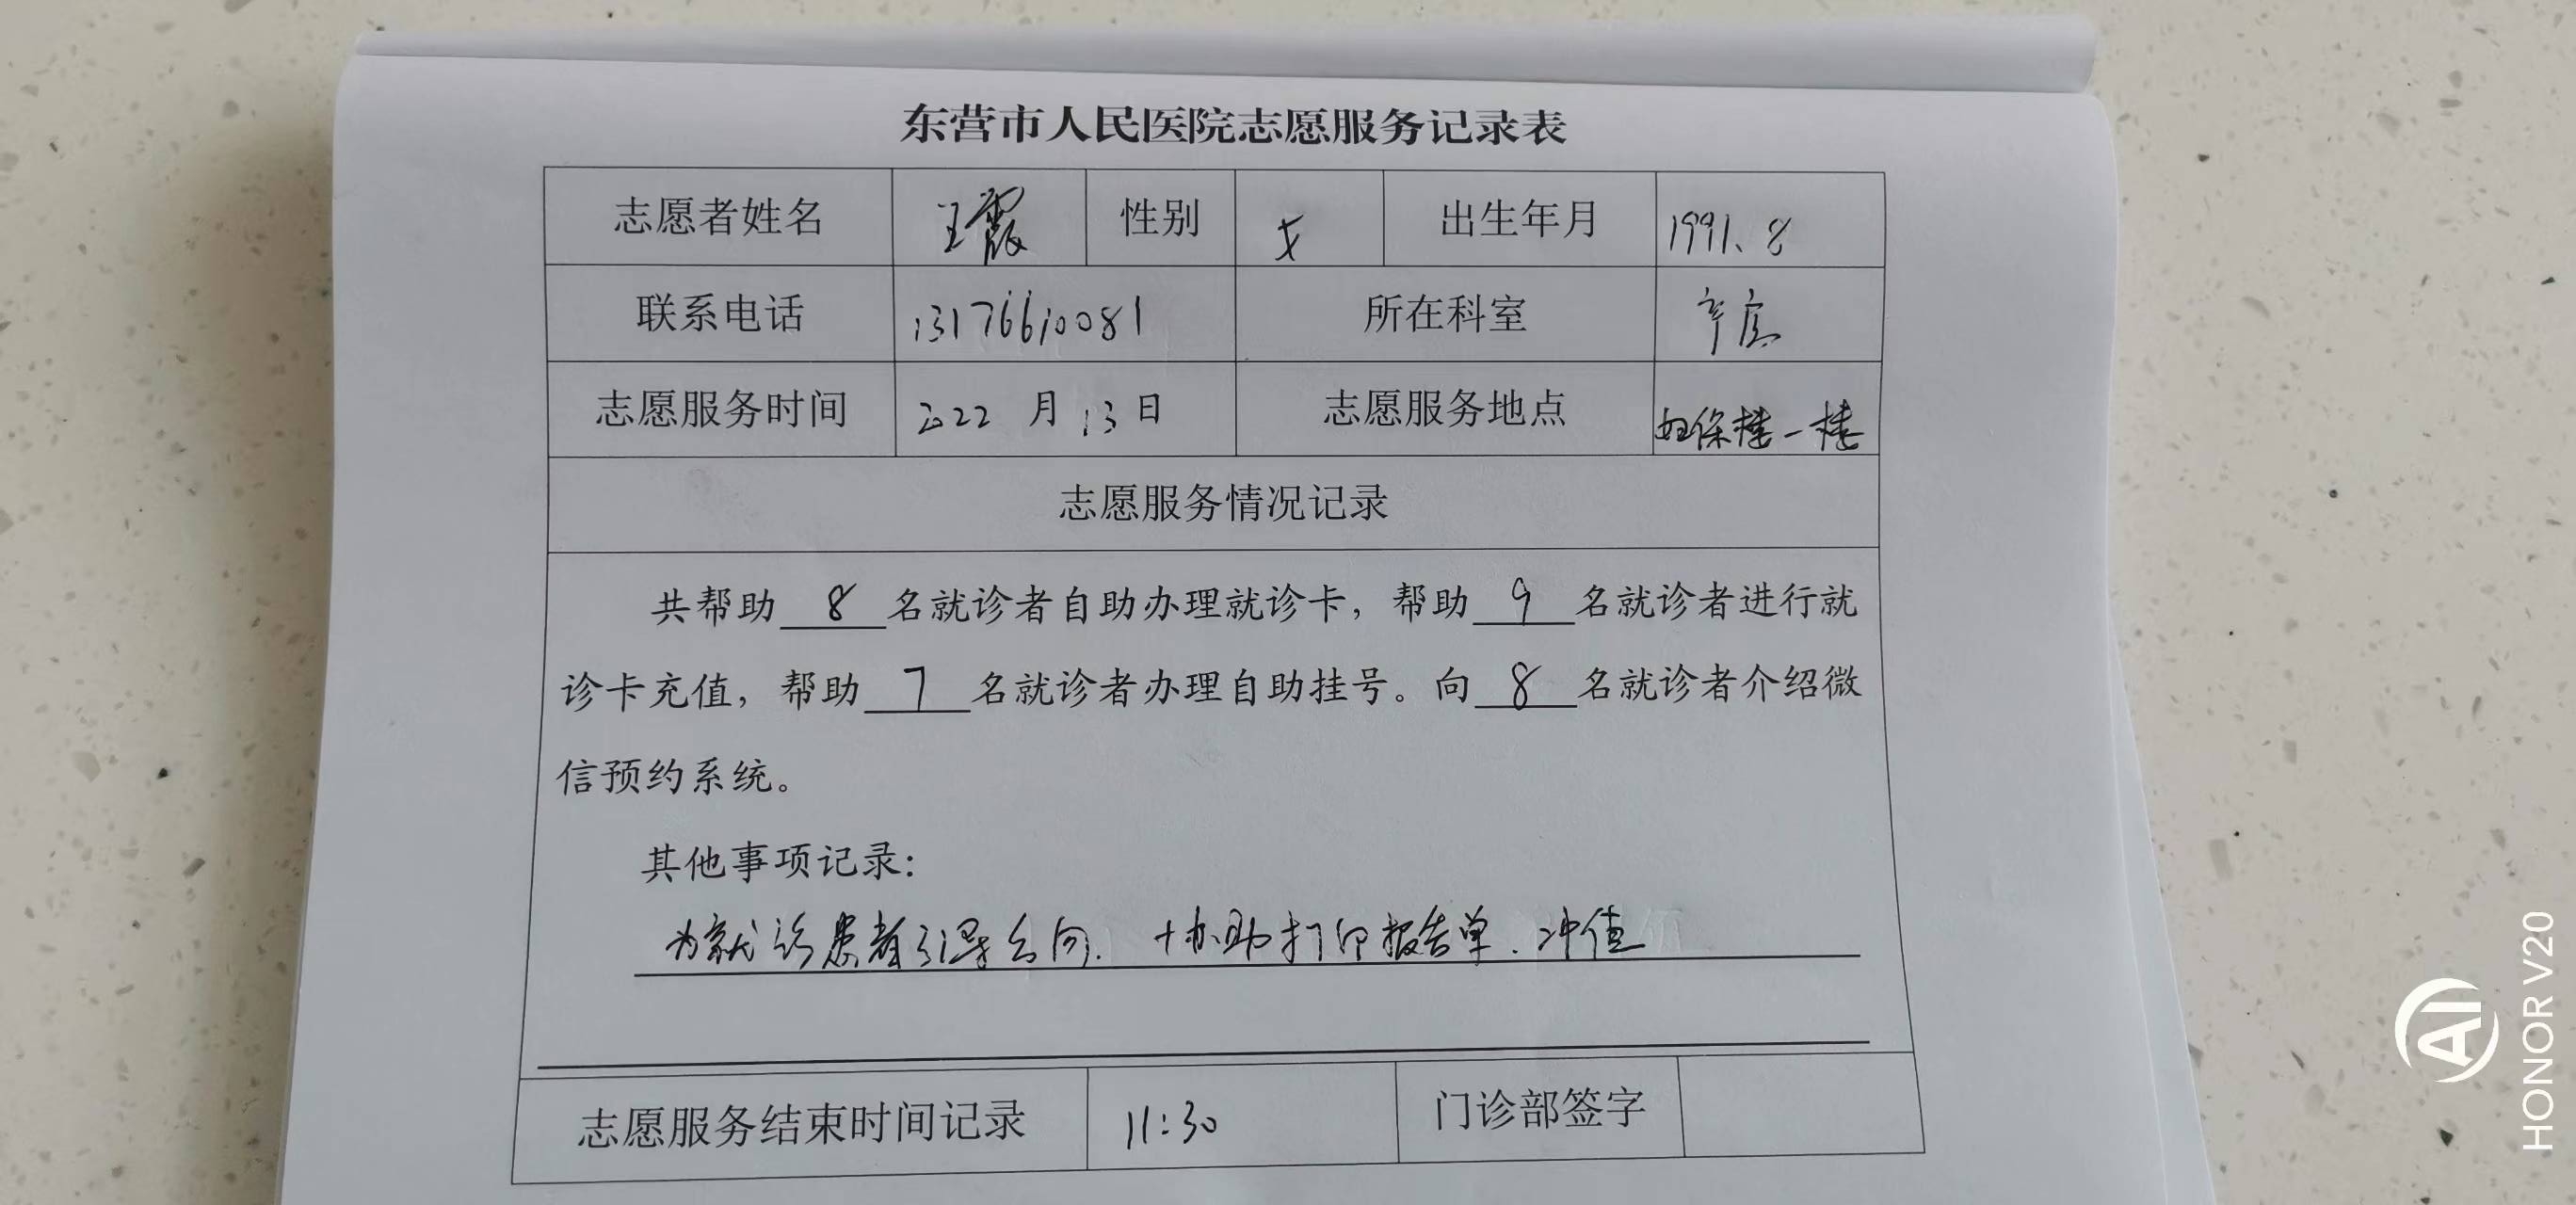 东营市人民医院志愿服务记录表
志愿者姓名 王霞 性别 女 出生年月 1991、8
联系电话 13176610081 所在科室 产房
志愿服务时间 2022 月 13 日 志愿服务地点 妇保楼一楼
志愿服务情况记录
共帮助 8 名就诊者自助办理就诊卡，帮助 9 名就诊者进行就
诊卡充值，帮助 7 名就诊者办理自助挂号。向 8 名就诊者介绍微
信预约系统。
其他事项记录：
为就诊患者引导方向. 协助打印报告单. 冲值
志愿服务结束时间记录 11:30 门诊部签字
AI
HONOR V20